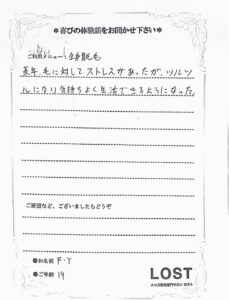 ＊喜びの体験談をお聞かせ下さい＊
ご利用メニュー：全身脱毛
長年 毛に対してストレスがあったが、ツルツ
ルになり気持ちよく生活できるようになった。
ご要望など、ございましたらどうぞ
●お名前 F・Y
●ご年齢 19
LOST
メンズ脱毛専門サロン ロスト